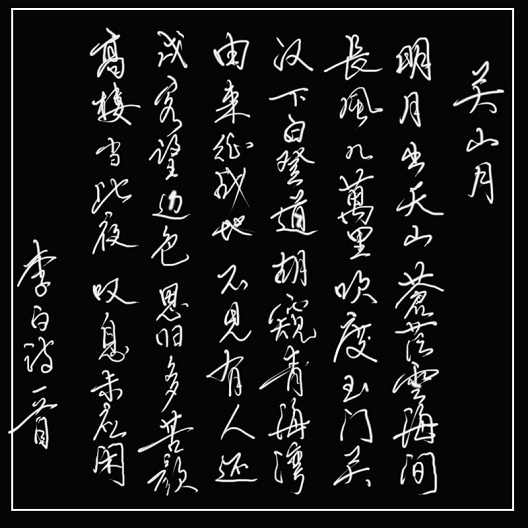 关山月
明月出天山蒼茫雲海间
長風几萬里吹度玉门关
汉下白登道胡窥青海湾
由来征战地不见有人还
戍客望边色思归多苦颜
高樓当此夜叹息未应闲
李白诗一首